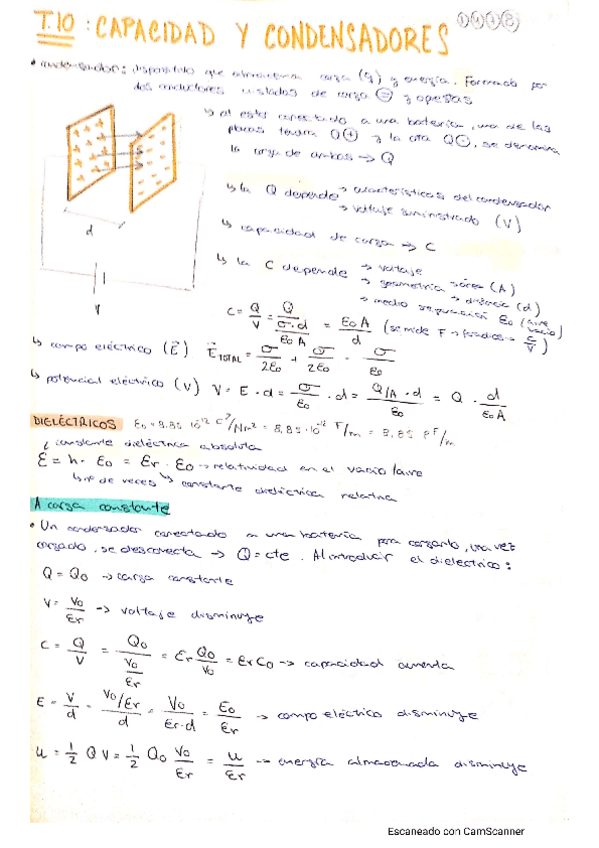 T.10: CAPACIDAD Y CONDENSADORES
• condensador: dispositivo que almacena carga (q) y energía. Formando por
dos conductores aislados de carga = y opestas
↳ al estar conectado a una batería, una de las
placas tendrá Q⊕ y la otra Q⊖, se denomina
la carga de ambos → Q
↳ la Q depende → características del condensador
→ voltaje suministrado (V)
d
↳ capacidad de carga → C
V
↳ la C depende → voltaje
→ geometría área (A)
→ distancia (d)
→ medio separación ε0 (aire vacío)
C = Q/V = Q/(σ·d/ε0 A) = ε0 A/d (se mide F → faradios → C/V)
↳ campo eléctrico (E⃗) E⃗TOTAL = σ/2ε0 + σ/2ε0 = σ/ε0
↳ potencial eléctrico (V) V = E · d = σ/ε0 · d = Q/A · d/ε0 = Q · d/ε0 A
DIELÉCTRICOS ε0 = 8,85 · 10⁻¹² C²/Nm² = 8,85 · 10⁻¹² F/m = 8,85 pF/m
¿ constante dieléctrica absoluta
ε = k · ε0 = εr · ε0 → relatividad en el vacío/aire
↳ nº de veces ↳ constante dieléctrica relativa
A carga constante
• Un condensador conectado a una batería para cargarlo, una vez
cargado, se desconecta → Q = cte. Al introducir el dieléctrico:
Q = Q0 → carga constante
V = V0/εr → voltaje disminuye
C = Q/V = Q0/(V0/εr) = εr Q0/V0 = εr C0 → capacidad aumenta
E = V/d = (V0/εr)/d = V0/(εr·d) = E0/εr → campo eléctrico disminuye
U = 1/2 Q V = 1/2 Q0 V0/εr = U/εr → energía almacenada disminuye
Escaneado con CamScanner